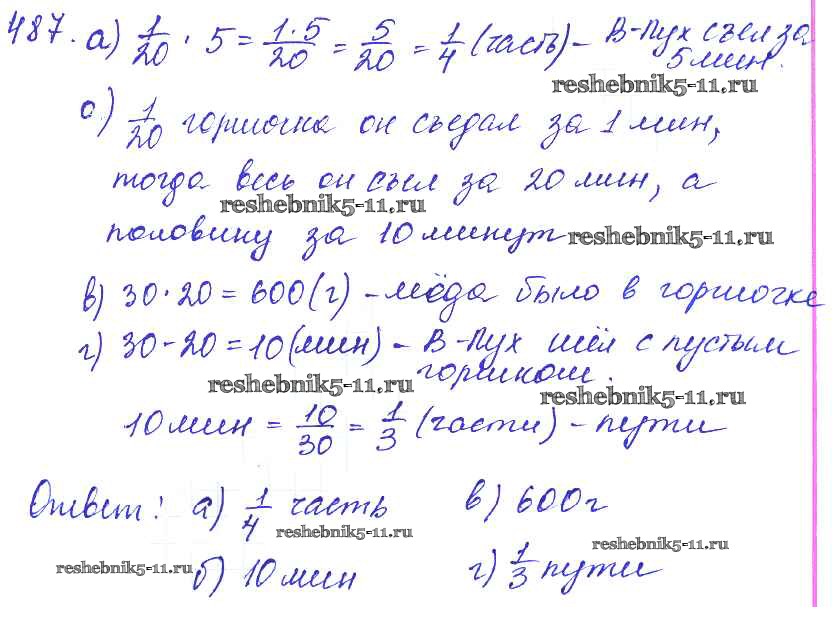 487. а) 1/20 · 5 = 1·5/20 = 5/20 = 1/4 (часть) – В-Пух съел за 5 мин.
reshebnik5-11.ru
б) 1/20 горшочка он съедал за 1 мин,
тогда весь он съел за 20 мин, а
reshebnik5-11.ru
половину за 10 минут
reshebnik5-11.ru
в) 30 · 20 = 600 (г) – мёда было в горшочке
г) 30 - 20 = 10 (мин) – В-Пух шёл с пустым
горшком.
reshebnik5-11.ru
reshebnik5-11.ru
10 мин = 10/30 = 1/3 (части) – пути
Ответ: а) 1/4 часть в) 600 г
reshebnik5-11.ru
reshebnik5-11.ru
reshebnik5-11.ru
б) 10 мин г) 1/3 пути